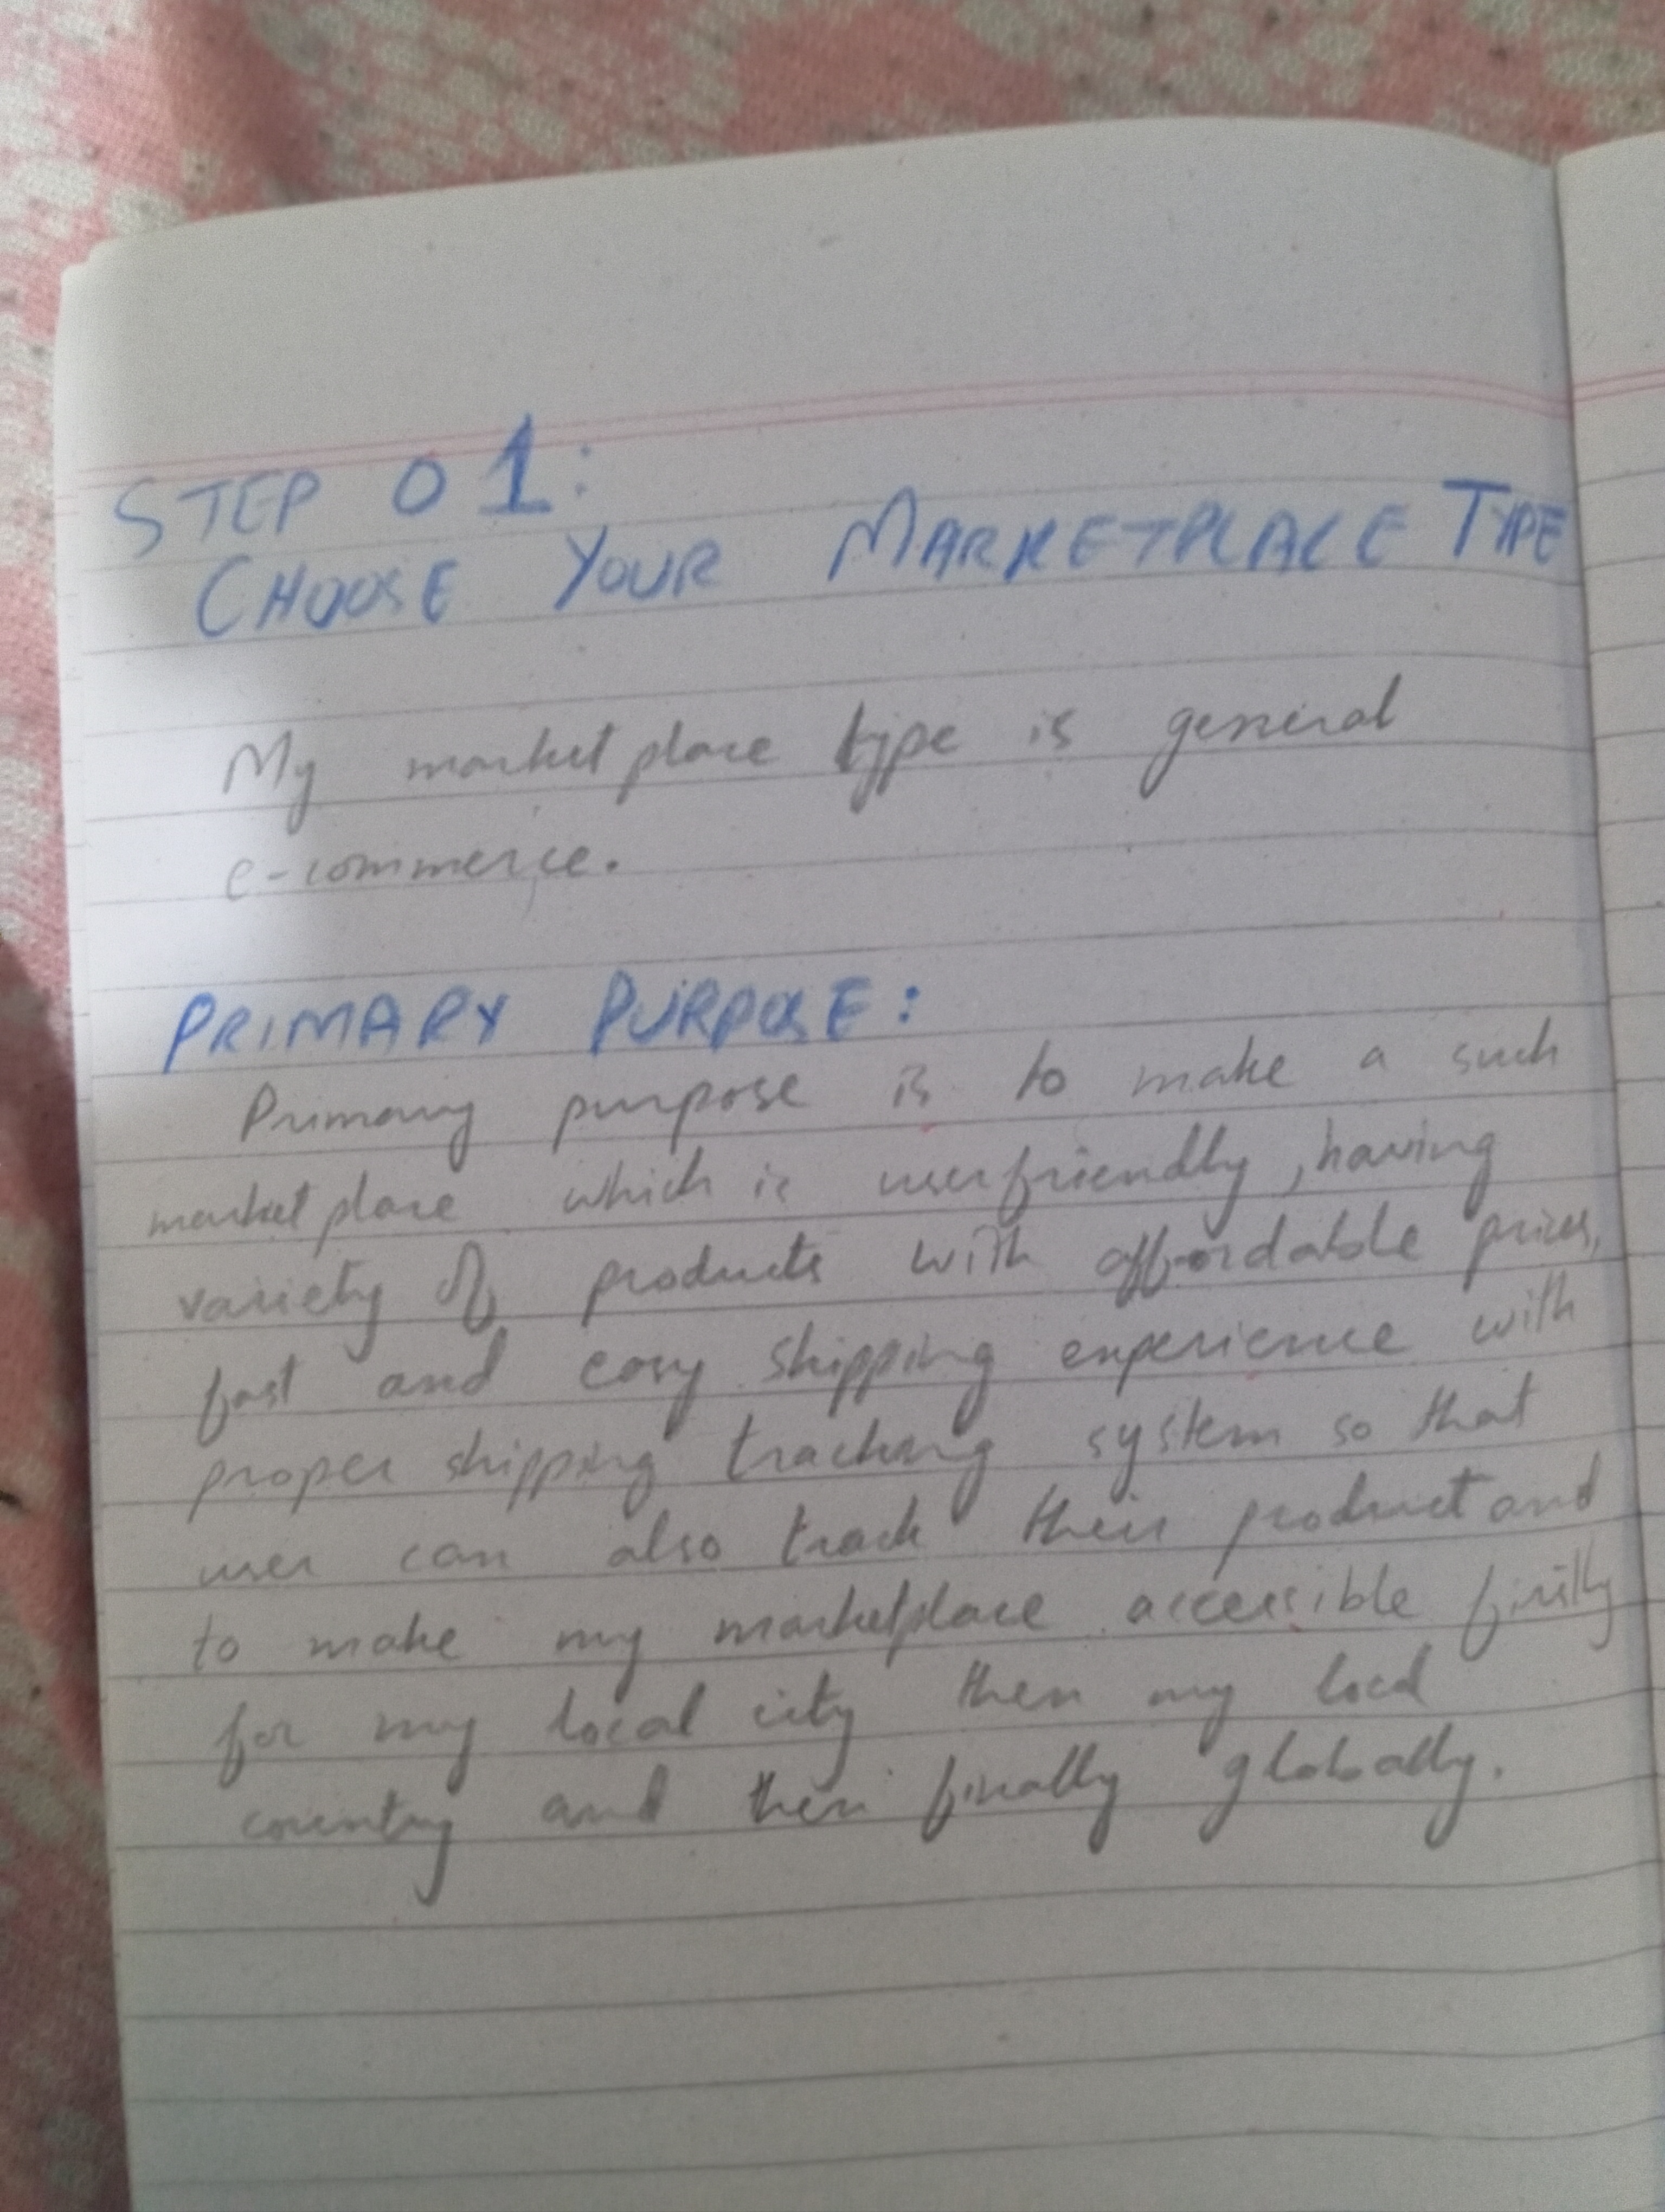 STEP 01:
CHOOSE YOUR MARKETPLACE TYPE
My marketplace type is general
e-commerce.
PRIMARY PURPOSE:
Primary purpose is to make a such
marketplace which is userfriendly, having
variety of products with affordable prices,
fast and easy shipping experience with
proper shipping tracking system so that
user can also track their product and
to make my marketplace accessible firstly
for my local city then my local
country and then finally globally.